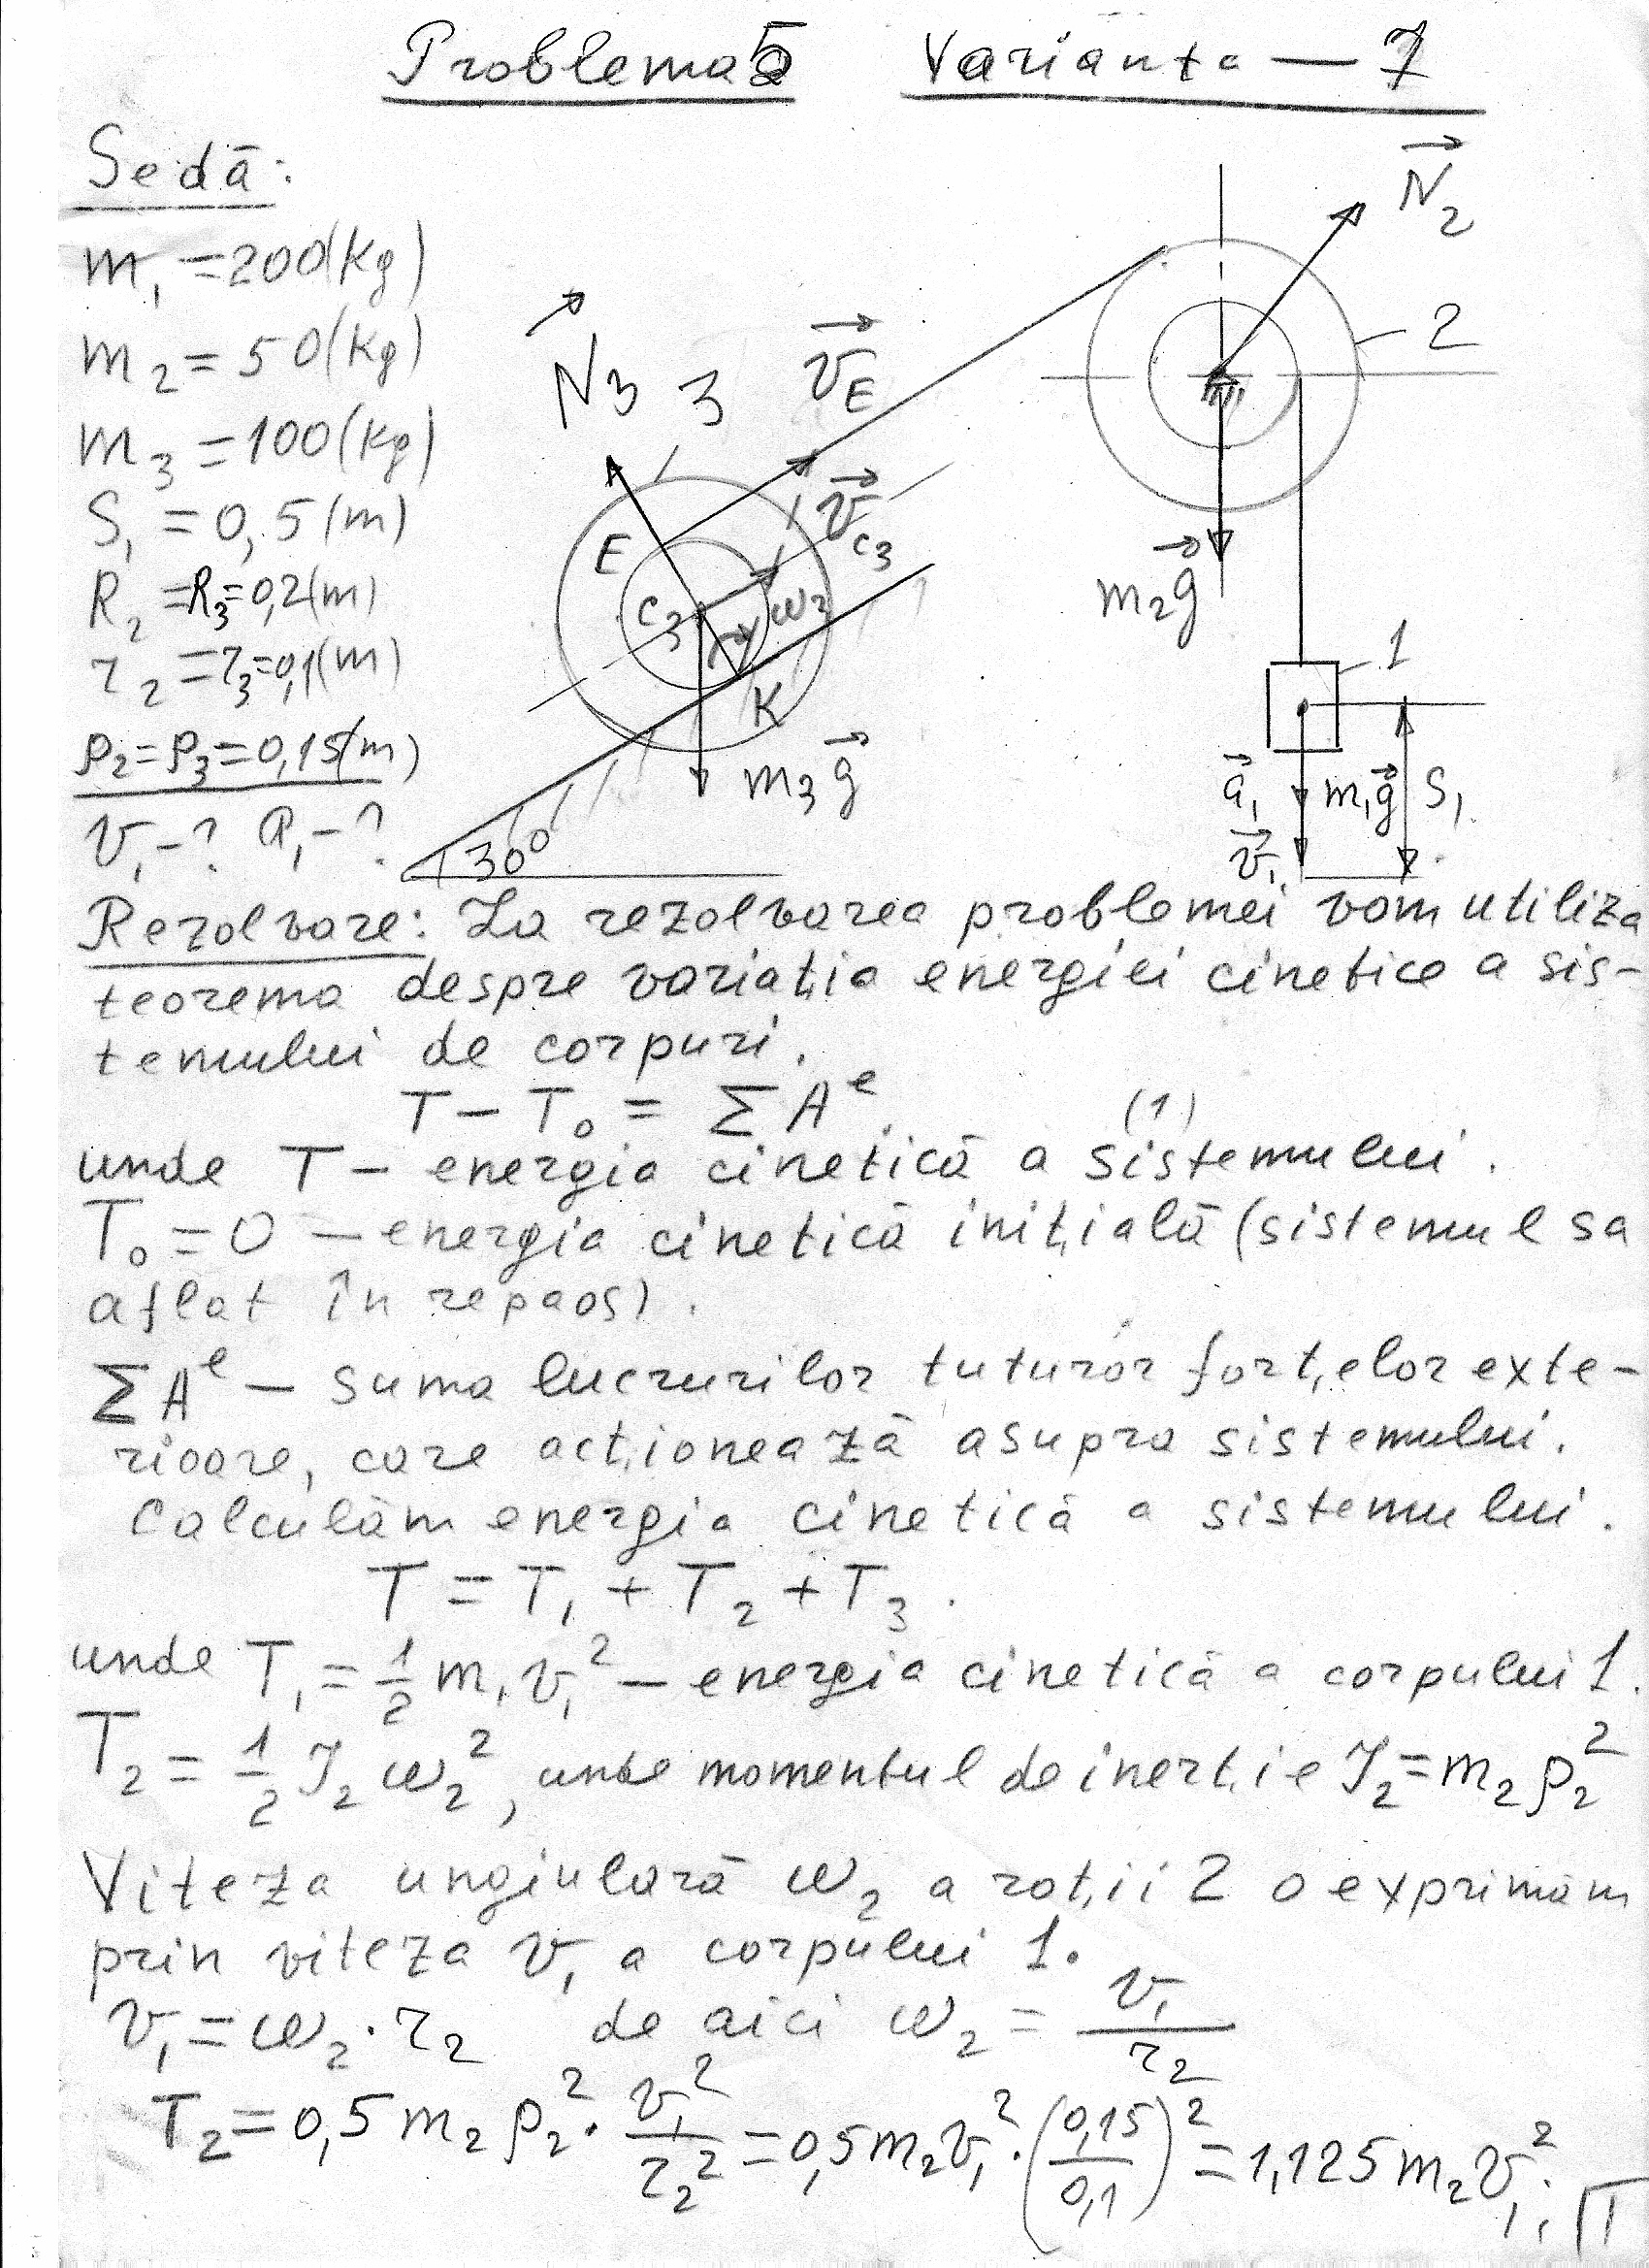 Problema 5 Varianta — 7
Se dă:
m₁ = 200 (kg)
m₂ = 50 (kg)
m₃ = 100 (kg)
S₁ = 0,5 (m)
R₂ = R₃ = 0,2 (m)
r₂ = r₃ = 0,1 (m)
ρ₂ = ρ₃ = 0,15 (m)
v₁ - ? a₁ - ?
N₃ 3 v_E
N₂
2
E
v_C₃
C₃
ω₃
K
m₃g
30°
m₂g
1
a₁ m₁g S₁
v₁
Rezolvare: La rezolvarea problemei vom utiliza
teorema despre variaţia energiei cinetice a sis-
temului de corpuri.
T – T₀ = ΣAᵉ (1)
unde T – energia cinetică a sistemului.
T₀ = 0 – energia cinetică iniţială (sistemul sa
aflat în repaos).
ΣAᵉ – suma lucrurilor tuturor forţelor exte-
rioare, care acţionează asupra sistemului.
Calculăm energia cinetică a sistemului.
T = T₁ + T₂ + T₃.
unde T₁ = 1/2 m₁v₁² – energia cinetică a corpului 1.
T₂ = 1/2 J₂ω₂², unde momentul de inerţie J₂ = m₂ρ₂²
Viteza unghiulară ω₂ a roţii 2 o exprimăm
prin viteza v₁ a corpului 1.
v₁ = ω₂·r₂ de aici ω₂ = v₁/r₂
T₂ = 0,5m₂ρ₂²·v₁²/r₂² = 0,5m₂v₁²·(0,15/0,1)² = 1,125m₂v₁²;